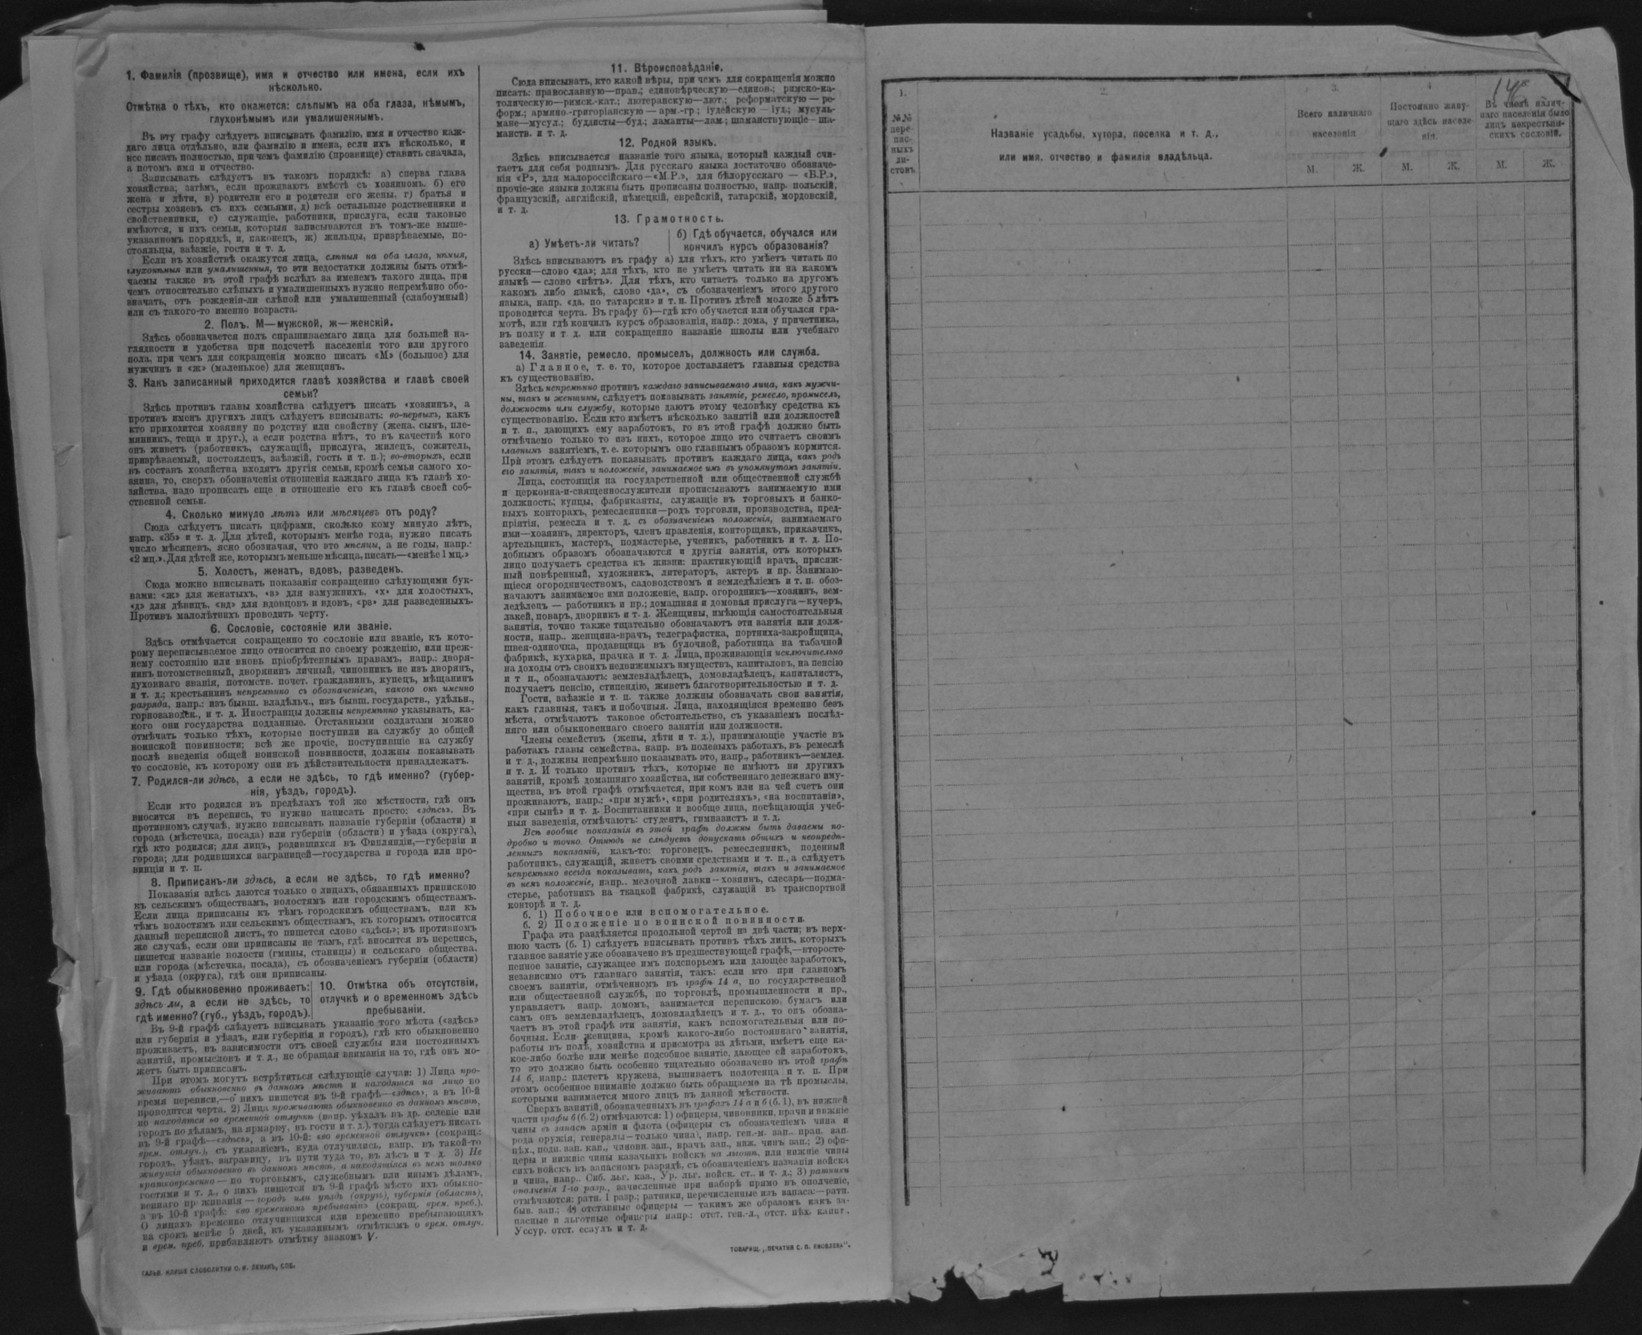 1. Фамилія (прозвище), имя и отчество или имена, если ихъ
нѣсколько.
Отмѣтка о тѣхъ, кто окажется: слѣпымъ на оба глаза, нѣмымъ,
глухонѣмымъ или умалишеннымъ.
Въ эту графу слѣдуетъ вписывать фамилію, имя и отчество каж-
даго лица отдѣльно, или фамилію и имена, если ихъ нѣсколько, и
все писать полностью, при чемъ фамилію (прозвище) ставить сначала,
а потомъ имя и отчество.
Записывать слѣдуетъ въ такомъ порядкѣ: а) сперва глава
хозяйства; затѣмъ, если проживаютъ вмѣстѣ съ хозяиномъ. б) его
жена и дѣти, в) родители его и родители его жены, г) братья и
сестры хозяевъ съ ихъ семьями, д) всѣ остальные родственники и
свойственники, е) служащіе, работники, прислуга, если таковые
имѣются, и ихъ семьи, которыя записываются въ томъ-же выше-
указанномъ порядкѣ, и, наконецъ, ж) жильцы, призрѣваемые, по-
стояльцы, заѣзжіе, гости и т. д.
Если въ хозяйствѣ окажутся лица, слѣпыя на оба глаза, нѣмыя,
глухонѣмыя или умалишенныя, то эти недостатки должны быть отмѣ-
чаемы также въ этой графѣ вслѣдъ за именемъ такого лица, при
чемъ относительно слѣпыхъ и умалишенныхъ нужно непремѣнно обо-
значать, отъ рожденія-ли слѣпой или умалишенный (слабоумный)
или съ такого-то именно возраста.
2. Полъ. М—мужской, ж—женскій.
Здѣсь обозначается полъ спрашиваемаго лица для большей на-
глядности и удобства при подсчетѣ населенія того или другого
пола, при чемъ для сокращенія можно писать «М» (большое) для
мужчинъ и «ж» (маленькое) для женщинъ.
3. Какъ записанный приходится главѣ хозяйства и главѣ своей
семьи?
Здѣсь противъ главы хозяйства слѣдуетъ писать «хозяинъ», а
противъ именъ другихъ лицъ слѣдуетъ вписывать: во-первыхъ, какъ
кто приходится хозяину по родству или свойству (жена, сынъ, пле-
мянникъ, теща и друг.), а если родства нѣтъ, то въ качествѣ кого
онъ живетъ (работникъ, служащій, прислуга, жилецъ, сожитель,
призрѣваемый, постоялецъ, заѣзжій, гость и т. п.); во-вторыхъ, если
въ составъ хозяйства входятъ другія семьи, кромѣ семьи самого хо-
зяина, то, сверхъ обозначенія отношенія каждаго лица къ главѣ хо-
зяйства, надо прописать еще и отношеніе его къ главѣ своей соб-
ственной семьи.
4. Сколько минуло лѣтъ или мѣсяцевъ отъ роду?
Сюда слѣдуетъ писать цифрами, сколько кому минуло лѣтъ,
напр. «35» и т. д. Для дѣтей, которымъ менѣе года, нужно писать
число мѣсяцевъ, ясно обозначая, что это мѣсяцы, а не годы, напр.:
«2 мц.». Для дѣтей же, которымъ меньше мѣсяца, писать—«менѣе 1 мц.»
5. Холостъ, женатъ, вдовъ, разведенъ.
Сюда можно вписывать показанія сокращенно слѣдующими бук-
вами: «ж» для женатыхъ, «з» для замужнихъ, «х» для холостыхъ,
«д» для дѣвицъ, «вд» для вдовцовъ и вдовъ, «рз» для разведенныхъ.
Противъ малолѣтнихъ проводить черту.
6. Сословіе, состояніе или званіе.
Здѣсь отмѣчается сокращенно то сословіе или званіе, къ кото-
рому переписываемое лицо относится по своему рожденію, или преж-
нему состоянію или вновь пріобрѣтеннымъ правамъ, напр.: дворя-
нинъ потомственный, дворянинъ личный, чиновникъ не изъ дворянъ,
духовнаго званія, потомств. почет. гражданинъ, купецъ, мѣщанинъ
и т. д.; крестьянинъ непремѣнно съ обозначеніемъ, какого онъ именно
разряда, напр.: изъ бывш. владѣльч., изъ бывш. государств., удѣльн.,
горнозаводск., и т. д. Иностранцы должны непремѣнно указывать, ка-
кого они государства подданные. Отставными солдатами можно
отмѣчать только тѣхъ, которые поступили на службу до общей
воинской повинности; всѣ же прочіе, поступившіе на службу
послѣ введенія общей воинской повинности, должны показывать
то сословіе, къ которому они въ дѣйствительности принадлежатъ.
7. Родился-ли здѣсь, а если не здѣсь, то гдѣ именно? (губер-
нія, уѣздъ, городъ).
Если кто родился въ предѣлахъ той же мѣстности, гдѣ онъ
вносится въ перепись, то нужно написать просто: «здѣсь». Въ
противномъ случаѣ, нужно вписывать названіе губерніи (области) и
города (мѣстечка, посада) или губерніи (области) и уѣзда (округа),
гдѣ кто родился; для лицъ, родившихся въ Финляндіи,—губерніи и
города; для родившихся заграницей—государства и города или про-
винціи и т. п.
8. Приписанъ-ли здѣсь, а если не здѣсь, то гдѣ именно?
Показанія здѣсь даются только о лицахъ, обязанныхъ припискою
къ сельскимъ обществамъ, волостямъ или городскимъ обществамъ.
Если лица приписаны къ тѣмъ городскимъ обществамъ, или къ
тѣмъ волостямъ или сельскимъ обществамъ, къ которымъ относится
данный переписной листъ, то пишется слово «здѣсь»; въ противномъ
же случаѣ, если они приписаны не тамъ, гдѣ вносятся въ перепись,
пишется названіе волости (гмины, станицы) и сельскаго общества,
или города (мѣстечка, посада), съ обозначеніемъ губерніи (области)
и уѣзда (округа), гдѣ они приписаны.
9. Гдѣ обыкновенно проживаетъ:
здѣсь ли, а если не здѣсь, то
гдѣ именно? (губ., уѣздъ, городъ).
10. Отмѣтка объ отсутствіи,
отлучкѣ и о временномъ здѣсь
пребываніи.
Въ 9-й графѣ слѣдуетъ вписывать указаніе того мѣста («здѣсь»
или губернія и уѣздъ, или губернія и городъ), гдѣ кто обыкновенно
проживаетъ, въ зависимости отъ своей службы или постоянныхъ
занятій, промысловъ и т. д., не обращая вниманія на то, гдѣ онъ мо-
жетъ быть приписанъ.
При этомъ могутъ встрѣтиться слѣдующіе случаи: 1) Лица про-
живаютъ обыкновенно въ данномъ мѣстѣ и находятся на лицо во
время переписи,—о нихъ пишется въ 9-й графѣ—«здѣсь», а въ 10-й
проводится черта. 2) Лица проживаютъ обыкновенно въ данномъ мѣстѣ,
но находятся во временной отлучкѣ (напр. уѣхалъ въ др. селеніе или
городъ по дѣламъ, на ярмарку, въ гости и т. д.), тогда слѣдуетъ писать
въ 9-й графѣ—«здѣсь», а въ 10-й: «во временной отлучкѣ» (сокращ.:
врем. отлуч.), съ указаніемъ, куда отлучились, напр. въ такой-то
городъ, уѣздъ, заграницу, въ пути туда то, въ лѣсъ и т. д. 3) Не
живутъ обыкновенно въ данномъ мѣстѣ, а находятся въ немъ только
кратковременно — по торговымъ, служебнымъ или инымъ дѣламъ,
гостями и т. д., о нихъ пишется въ 9-й графѣ мѣсто ихъ обыкно-
веннаго проживанія — городъ или уѣздъ (округъ), губернія (область),
а въ 10-й графѣ: «во временномъ пребываніи» (сокращ. врем. преб.).
О лицахъ временно отлучившихся или временно пребывающихъ
на срокъ менѣе 5 дней, къ указаннымъ отмѣткамъ о врем. отлуч.
и врем. преб. прибавляютъ отмѣтку знакомъ V.
11. Вѣроисповѣданіе.
Сюда вписывать, кто какой вѣры, при чемъ для сокращенія можно
писать: православную—прав.; единовѣрческую—единов.; римско-ка-
толическую—римск.-кат.; лютеранскую—лют.; реформатскую — ре-
форм.; армяно-григоріанскую — арм.-гр.; іудейскую — іуд.; мусуль-
мане—мусул.; буддисты—буд.; ламаиты—лам.; шаманствующіе—ша-
манств. и т. д.
12. Родной языкъ.
Здѣсь вписывается названіе того языка, который каждый счи-
таетъ для себя роднымъ. Для русскаго языка достаточно обозначе-
нія «Р», для малороссійскаго—«М.Р.», для бѣлорусскаго — «Б.Р.»,
прочіе-же языки должны быть прописаны полностью, напр. польскій,
французскій, англійскій, нѣмецкій, еврейскій, татарскій, мордовскій,
и т. д.
13. Грамотность.
а) Умѣетъ-ли читать?
б) Гдѣ обучается, обучался или
кончилъ курсъ образованія?
Здѣсь вписываютъ въ графу а) для тѣхъ, кто умѣетъ читать по
русски—слово «да»; для тѣхъ, кто не умѣетъ читать ни на какомъ
языкѣ — слово «нѣтъ». Для тѣхъ, кто читаетъ только на другомъ
какомъ либо языкѣ, слово «да», съ обозначеніемъ этого другого
языка, напр. «да, по татарски» и т. п. Противъ дѣтей моложе 5 лѣтъ
проводится черта. Въ графу б)—гдѣ кто обучается или обучался гра-
мотѣ, или гдѣ кончилъ курсъ образованія, напр.: дома, у причетника,
въ полку и т. д. или сокращенно названіе школы или учебнаго
заведенія.
14. Занятіе, ремесло, промыселъ, должность или служба.
а) Главное, т. е. то, которое доставляетъ главныя средства
къ существованію.
Здѣсь непремѣнно противъ каждаго записываемаго лица, какъ мужчи-
ны, такъ и женщины, слѣдуетъ показывать занятіе, ремесло, промыселъ,
должность или службу, которые даютъ этому человѣку средства къ
существованію. Если кто имѣетъ нѣсколько занятій или должностей
и т. п., дающихъ ему заработокъ, то въ этой графѣ должно быть
отмѣчаемо только то изъ нихъ, которое лицо это считаетъ своимъ
главнымъ занятіемъ, т. е. которымъ оно главнымъ образомъ кормится.
При этомъ слѣдуетъ показывать противъ каждаго лица, какъ родъ
его занятія, такъ и положеніе, занимаемое имъ въ упомянутомъ занятіи.
Лица, состоящія на государственной или общественной службѣ
и церковно-и-священнослужители прописываютъ занимаемую ими
должность; купцы, фабриканты, служащіе въ торговыхъ и банко-
выхъ конторахъ, ремесленники—родъ торговли, производства, пред-
пріятія, ремесла и т. д. съ обозначеніемъ положенія, занимаемаго
ими—хозяинъ, директоръ, членъ правленія, конторщикъ, приказчикъ,
артельщикъ, мастеръ, подмастерье, ученикъ, работникъ и т. д. По-
добнымъ образомъ обозначаются и другія занятія, отъ которыхъ
лицо получаетъ средства къ жизни: практикующій врачъ, присяж-
ный повѣренный, художникъ, литераторъ, актеръ и пр. Занимаю-
щіеся огородничествомъ, садоводствомъ и земледѣліемъ и т. п. обоз-
начаютъ занимаемое ими положеніе, напр. огородникъ—хозяинъ, зем-
ледѣлецъ — работникъ и пр.; домашняя и домовая прислуга—кучеръ,
лакей, поваръ, дворникъ и т. д. Женщины, имѣющія самостоятельныя
занятія, точно также тщательно обозначаютъ эти занятія или долж-
ности, напр.. женщина-врачъ, телеграфистка, портниха-закройщица,
швея-одиночка, продавщица въ булочной, работница на табачной
фабрикѣ, кухарка, прачка и т. д. Лица, проживающія исключительно
на доходы отъ своихъ недвижимыхъ имуществъ, капиталовъ, на пенсію
и т п., обозначаютъ: землевладѣлецъ, домовладѣлецъ, капиталистъ,
получаетъ пенсію, стипендію, живетъ благотворительностью и т. д.
Гости, заѣзжіе и т. п. также должны обозначать свои занятія,
какъ главныя, такъ и побочныя. Лица, находящіяся временно безъ
мѣста, отмѣчаютъ таковое обстоятельство, съ указаніемъ послѣд-
няго или обыкновеннаго своего занятія или должности.
Члены семействъ (жены, дѣти и т. д.), принимающіе участіе въ
работахъ главы семейства, напр. въ полевыхъ работахъ, въ ремеслѣ
и т. д., должны непремѣнно показывать это, напр., работникъ—землед.
и т. д. И только противъ тѣхъ, которые не имѣютъ ни другихъ
занятій, кромѣ домашняго хозяйства, ни собственнаго денежнаго иму-
щества, въ этой графѣ отмѣчается, при комъ или на чей счетъ они
проживаютъ, напр.: «при мужѣ», «при родителяхъ», «на воспитаніи»,
«при сынѣ» и т. д. Воспитанники и вообще лица, посѣщающія учеб-
ныя заведенія, отмѣчаютъ: студентъ, гимназистъ и т. д.
Всѣ вообще показанія въ этой графѣ должны быть даваемы по-
дробно и точно. Отнюдь не слѣдуетъ допускать общихъ и неопредѣ-
ленныхъ показаній, какъ-то: торговецъ, ремесленникъ, поденный
работникъ, служащій, живетъ своими средствами и т. п., а слѣдуетъ
непремѣнно всегда показывать, какъ родъ занятія, такъ и занимаемое
въ немъ положеніе, напр.. мелочной лавки—хозяинъ, слесарь—подма-
стерье, работникъ на ткацкой фабрикѣ, служащій въ транспортной
конторѣ и т. д.
б. 1) Побочное или вспомогательное.
б. 2) Положеніе по воинской повинности.
Графа эта раздѣляется продольной чертой на двѣ части; въ верх-
нюю часть (б. 1) слѣдуетъ вписывать противъ тѣхъ лицъ, которыхъ
главное занятіе уже обозначено въ предшествующей графѣ,—второсте-
пенное занятіе, служащее имъ подспорьемъ или дающее заработокъ,
независимо отъ главнаго занятія, такъ: если кто при главномъ
своемъ занятіи, отмѣченномъ въ графѣ 14 а, по государственной
или общественной службѣ, по торговлѣ, промышленности и пр.,
управляетъ напр. домомъ, занимается перепискою бумагъ или
самъ онъ землевладѣлецъ, домовладѣлецъ и т. д., то онъ обозна-
чаетъ въ этой графѣ эти занятія, какъ вспомогательныя или по-
бочныя. Если женщина, кромѣ какого-либо постояннаго занятія,
работы въ полѣ, хозяйства и присмотра за дѣтьми, имѣетъ еще ка-
кое-либо болѣе или менѣе подсобное занятіе, дающее ей заработокъ,
то это должно быть особенно тщательно обозначено въ этой графѣ
14 б, напр.: плететъ кружева, вышиваетъ полотенца и т. п. При
этомъ особенное вниманіе должно быть обращаемо на тѣ промыслы,
которыми занимается много лицъ въ данной мѣстности.
Сверхъ занятій, обозначенныхъ въ графахъ 14 а и б (б. 1), въ нижней
части графы б (б. 2) отмѣчаются: 1) офицеры, чиновники, врачи и нижніе
чины въ запасѣ арміи и флота (офицеры съ обозначеніемъ чина и
рода оружія, генералы—только чина), напр. ген.-м. зап.. прап. зап.
пѣх., подп. зап. кав., чиновн. зап., врачъ зап., ниж. чинъ зап.; 2) офи-
церы и нижніе чины казачьихъ войскъ на льготѣ, или нижніе чины
сихъ войскъ въ запасномъ разрядѣ, съ обозначеніемъ названія войска
и чина, напр.. Сиб. льг. каз., Ур. льг. войск. ст. и т. д.; 3) ратники
ополченія 1-го разр., зачисленные при наборѣ прямо въ ополченіе,
отмѣчаются: ратн. 1 разр.; ратники, перечисленные изъ запаса:—ратн.
быв. зап.; 4) отставные офицеры — такимъ же образомъ какъ за-
пасные и льготные офицеры напр.: отст. ген.-л., отст. пѣх. капит.,
Уссур. отст. есаулъ и т. д.
ТОВАРИЩ. „ПЕЧАТНЯ С. П. ЯКОВЛЕВА“.
1.
2.
3.
4
№№
пере-
пис-
ныхъ
ли-
стовъ.
Названіе усадьбы, хутора, поселка и т. д.,
или имя, отчество и фамилія владѣльца.
Всего наличнаго
населенія
М.
Ж.
Постоянно живу-
щаго здѣсь населе-
нія.
М.
Ж.
Въ числѣ налич-
наго населенія было
лицъ некрестьян-
скихъ сословій.
М.
Ж.